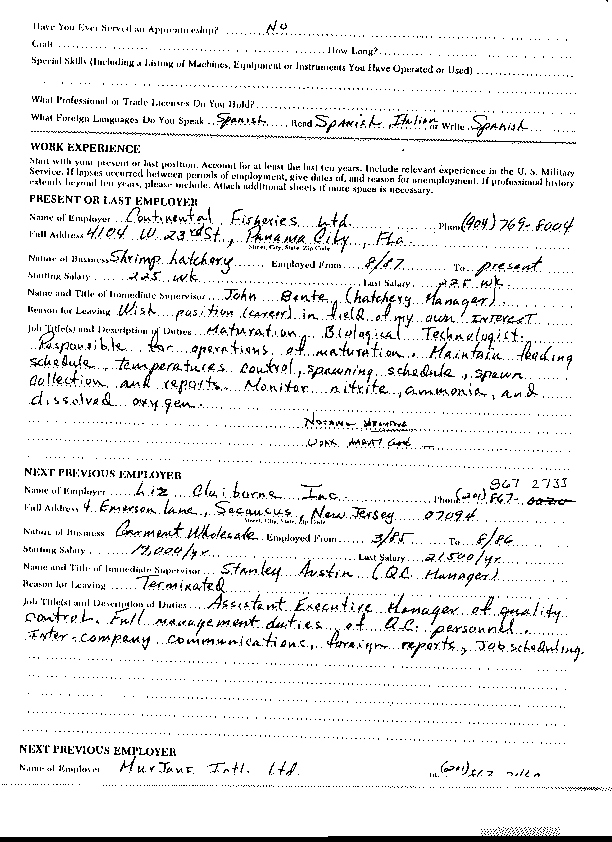 Have You Ever Served an Apprenticeship? No
Craft How Long?
Special Skills (Including a Listing of Machines, Equipment or Instruments You Have Operated or Used)
What Professional or Trade Licenses Do You Hold?
What Foreign Languages Do You Speak Spanish Read Spanish, Italian or Write Spanish
WORK EXPERIENCE
Start with your present or last position. Account for at least the last ten years. Include relevant experience in the U. S. Military
Service. If lapses occurred between periods of employment, give dates of, and reason for unemployment. If professional history
extends beyond ten years, please include. Attach additional sheets if more space is necessary.
PRESENT OR LAST EMPLOYER
Name of Employer Continental Fisheries Ltd. Phone (904) 769-8004
Full Address 4104 W 23rd St, Panama City, Fla
Street, City, State, Zip Code
Nature of Business Shrimp hatchery Employed From 8/87 To present
Starting Salary 225 wk Last Salary 225 wk.
Name and Title of Immediate Supervisor John Bente, (hatchery Manager)
Reason for Leaving Wish position (career) in field of my own INTEREST
Job Title(s) and Description of Duties Maturation, Biological Technologist.
Responsible for operations of maturation. Maintain feeding
schedule, temperatures control, spawning schedule, spawn
collection and reports. Monitor nitrite, ammonia, and
dissolved oxygen.
NEXT PREVIOUS EMPLOYER
867 2733
Name of Employer Liz Claiborne Inc Phone (201) 867-
Full Address 4 Emerson Lane, Secaucus, New Jersey 07094
Street, City, State, Zip Code
Nature of Business Garment Wholesale Employed From 3/85 To 8/86
Starting Salary 17,000/yr Last Salary 21500/yr
Name and Title of Immediate Supervisor Stanley Austin (Q.C. Manager)
Reason for Leaving Terminated
Job Title(s) and Description of Duties Assistant Executive Manager of quality
control. Full management duties of Q.C. personnel.
Inter-company communications, foreign reports, Job scheduling.
NEXT PREVIOUS EMPLOYER
Name of Employer Murjani Intl. Ltd. (201)